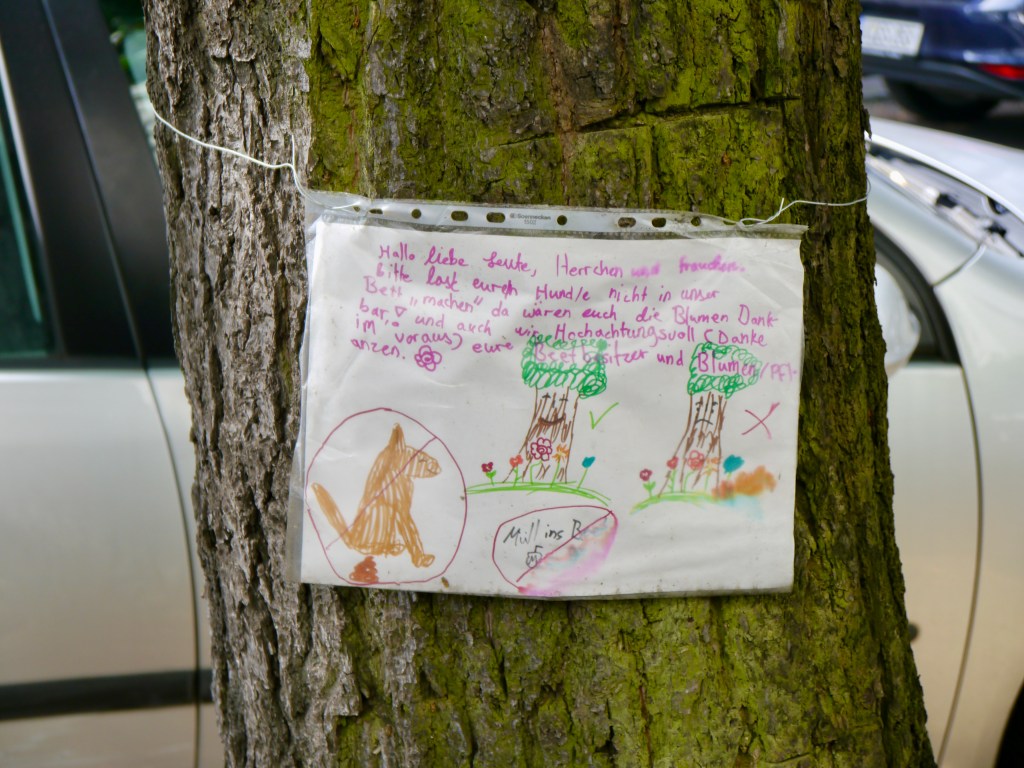 Hallo liebe Leute, Herrchen und frauchen.
bitte last euren Hund/e nicht in unser
Bett "machen" da wären euch die Blumen Dank-
bar! und auch wir Hochachtungsvoll (Danke
im voraus) eure Beetbesitzer und Blumen/Pfl-
anzen.
Müll ins